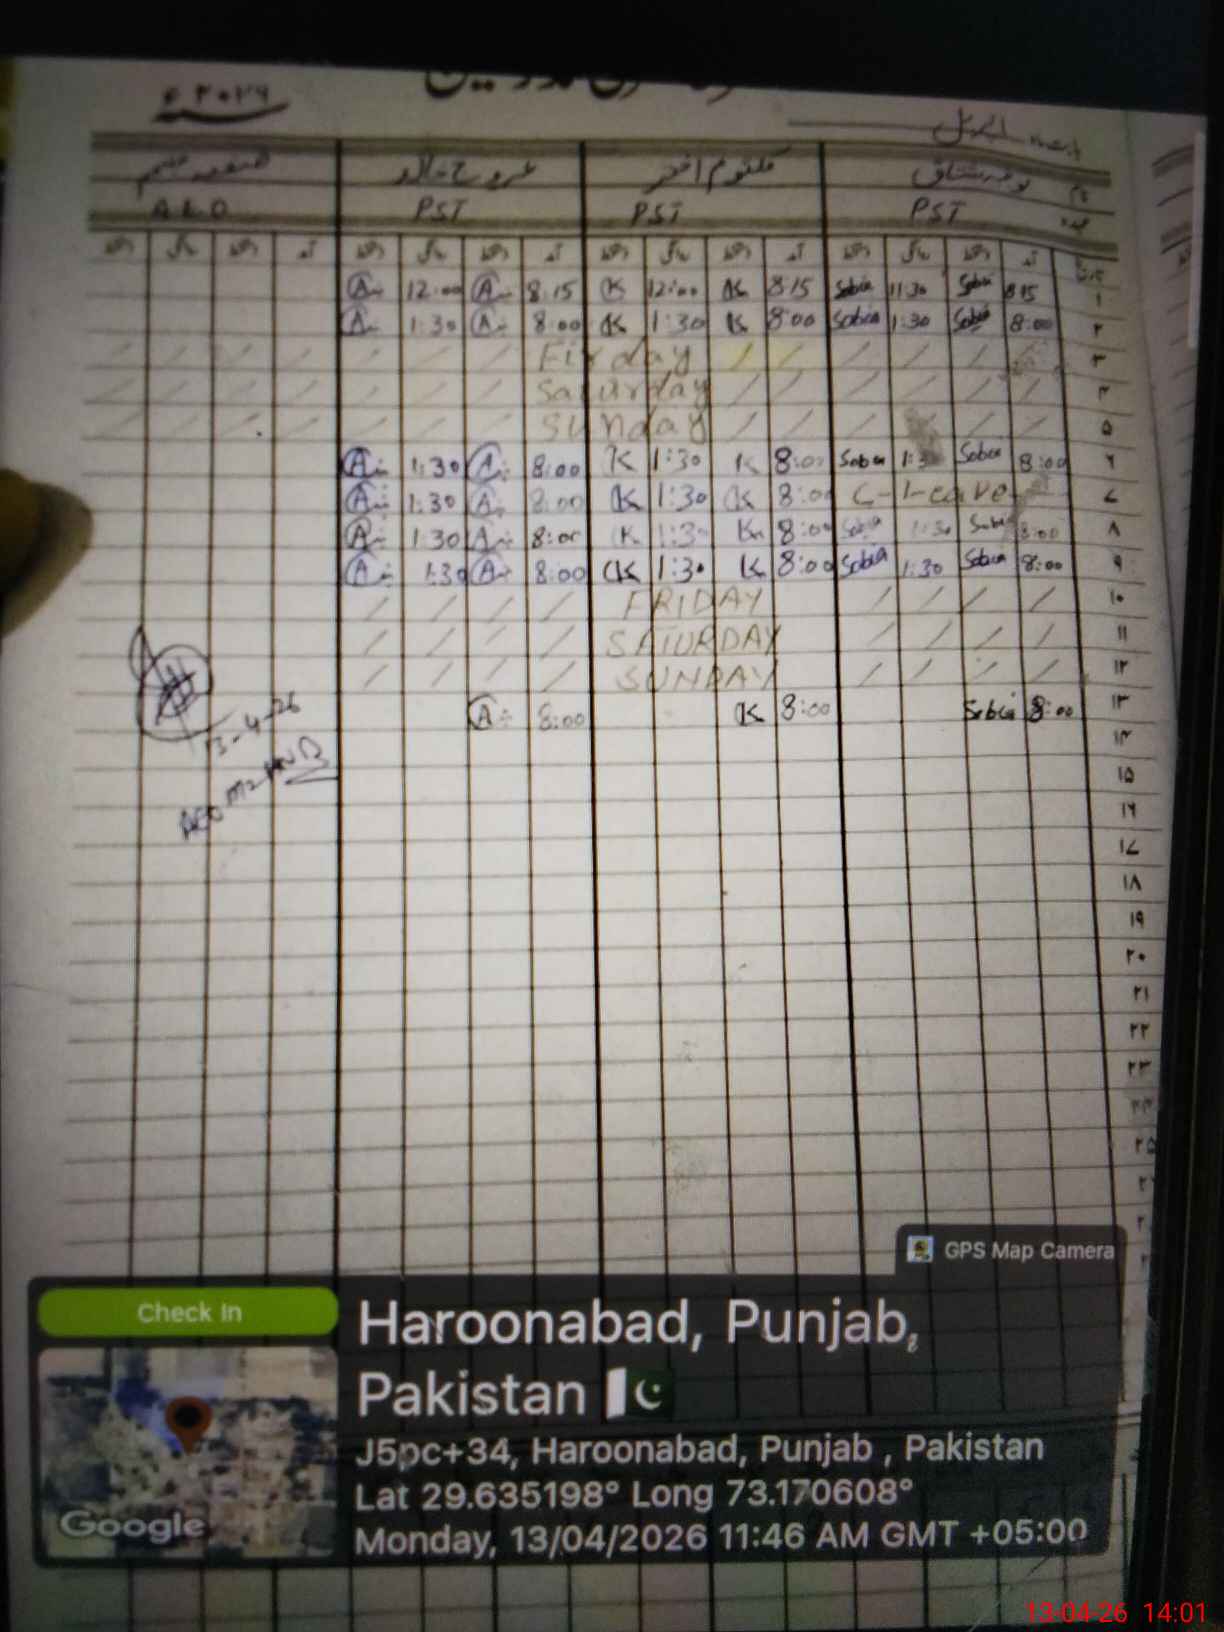 ۲۰۲۶ء
بابت ماہ اپریل
نام کلثوم اختر عروج خالد
عہدہ PST PST PST
تاریخ آمد دستخط روانگی دستخط آمد دستخط روانگی دستخط آمد دستخط روانگی دستخط آمد دستخط روانگی دستخط
A 12:00 A 8:15 K 12:00 K 8:15 Sobia 11:30 Sobia 8:15 ۱
A 1:30 A 8:00 K 1:30 K 8:00 Sobia 1:30 Sobia 8:00 ۲
/ / / / / / / Firday / / / / / / ۳
/ / / / / / / Saturday / / / / / / ۴
/ / / / / / / Sunday / / / / / / ۵
A 1:30 A 8:00 K 1:30 K 8:00 Sobia 1:30 Sobia 8:00 ۶
A 1:30 A 8:00 K 1:30 K 8:00 C-Leave ۷
A 1:30 A 8:00 K 1:30 K 8:00 Sobia 1:30 Sobia 8:00 ۸
A 1:30 A 8:00 K 1:30 K 8:00 Sobia 1:30 Sobia 8:00 ۹
/ / / / FRIDAY / / / / ۱۰
/ / / / SATURDAY / / / / ۱۱
/ / / / SUNDAY / / / / ۱۲
A 8:00 K 8:00 Sobia 8:00 ۱۳
13-4-26
۱۴
AEO
۱۵
۱۶
۱۷
۱۸
۱۹
۲۰
۲۱
۲۲
۲۳
۲۴
۲۵
GPS Map Camera
Check In
Haroonabad, Punjab,
Pakistan
J5pc+34, Haroonabad, Punjab , Pakistan
Lat 29.635198° Long 73.170608°
Google
Monday, 13/04/2026 11:46 AM GMT +05:00
13-04-26 14:01